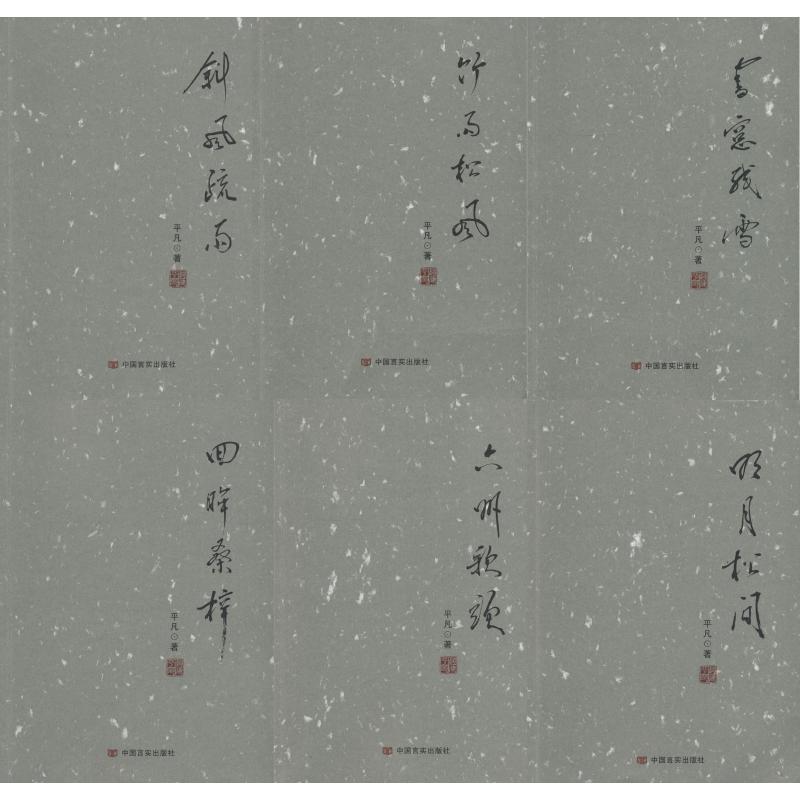 斜风疏雨
平凡⊙著
中国言实出版社
竹雨松风
平凡⊙著
中国言实出版社
书窗残雪
平凡⊙著
中国言实出版社
回眸桑梓
平凡⊙著
中国言实出版社
六州歌頭
平凡⊙著
中国言实出版社
明月松间
平凡⊙著
中国言实出版社